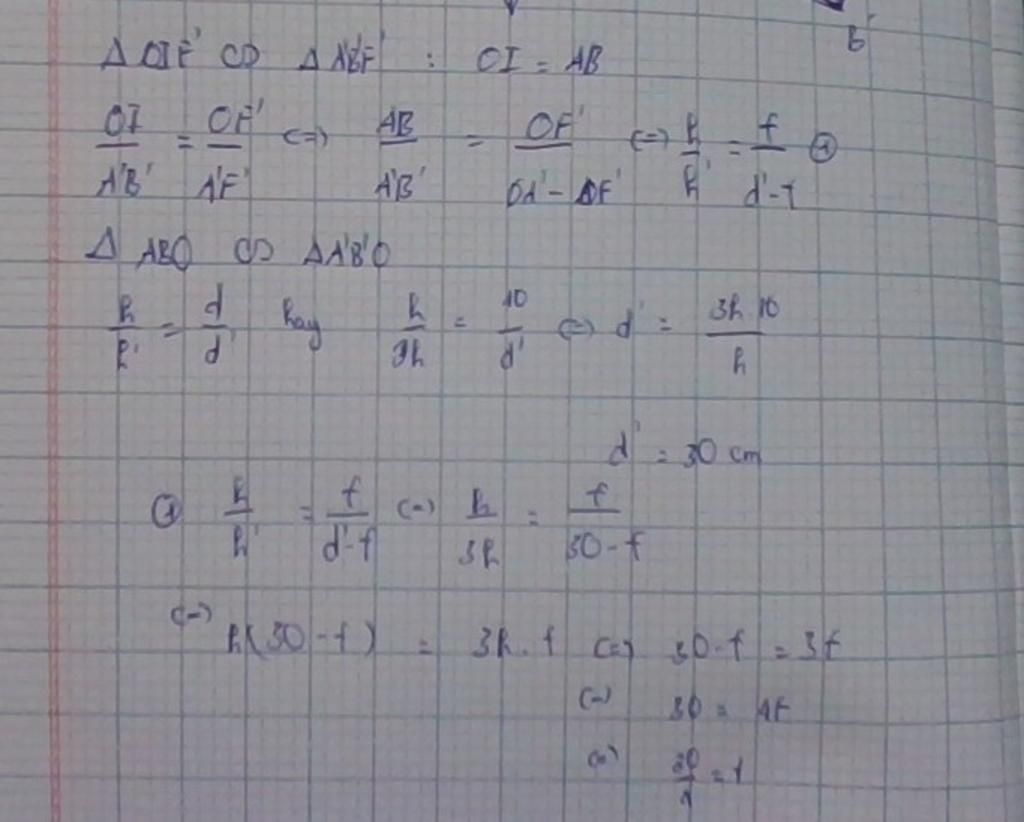 B'
Δ OIF' ∽ Δ A'B'F' : OI = AB
OI/A'B' = OF'/A'F' (=) AB/A'B' = OF'/OA' - OF' (=) h/h' = f/d'-f ⊛
Δ ABO ∽ ΔA'B'O
h/h' = d/d' hay h/3h = 10/d' (=) d' = 3h.10/h
d' = 30 cm
⊛ h/h' = f/d'-f (=) h/3h = f/30-f
(=) h(30-f) = 3h.f (=) 30-f = 3f
(=) 30 = 4f
(=) 30/4 = f